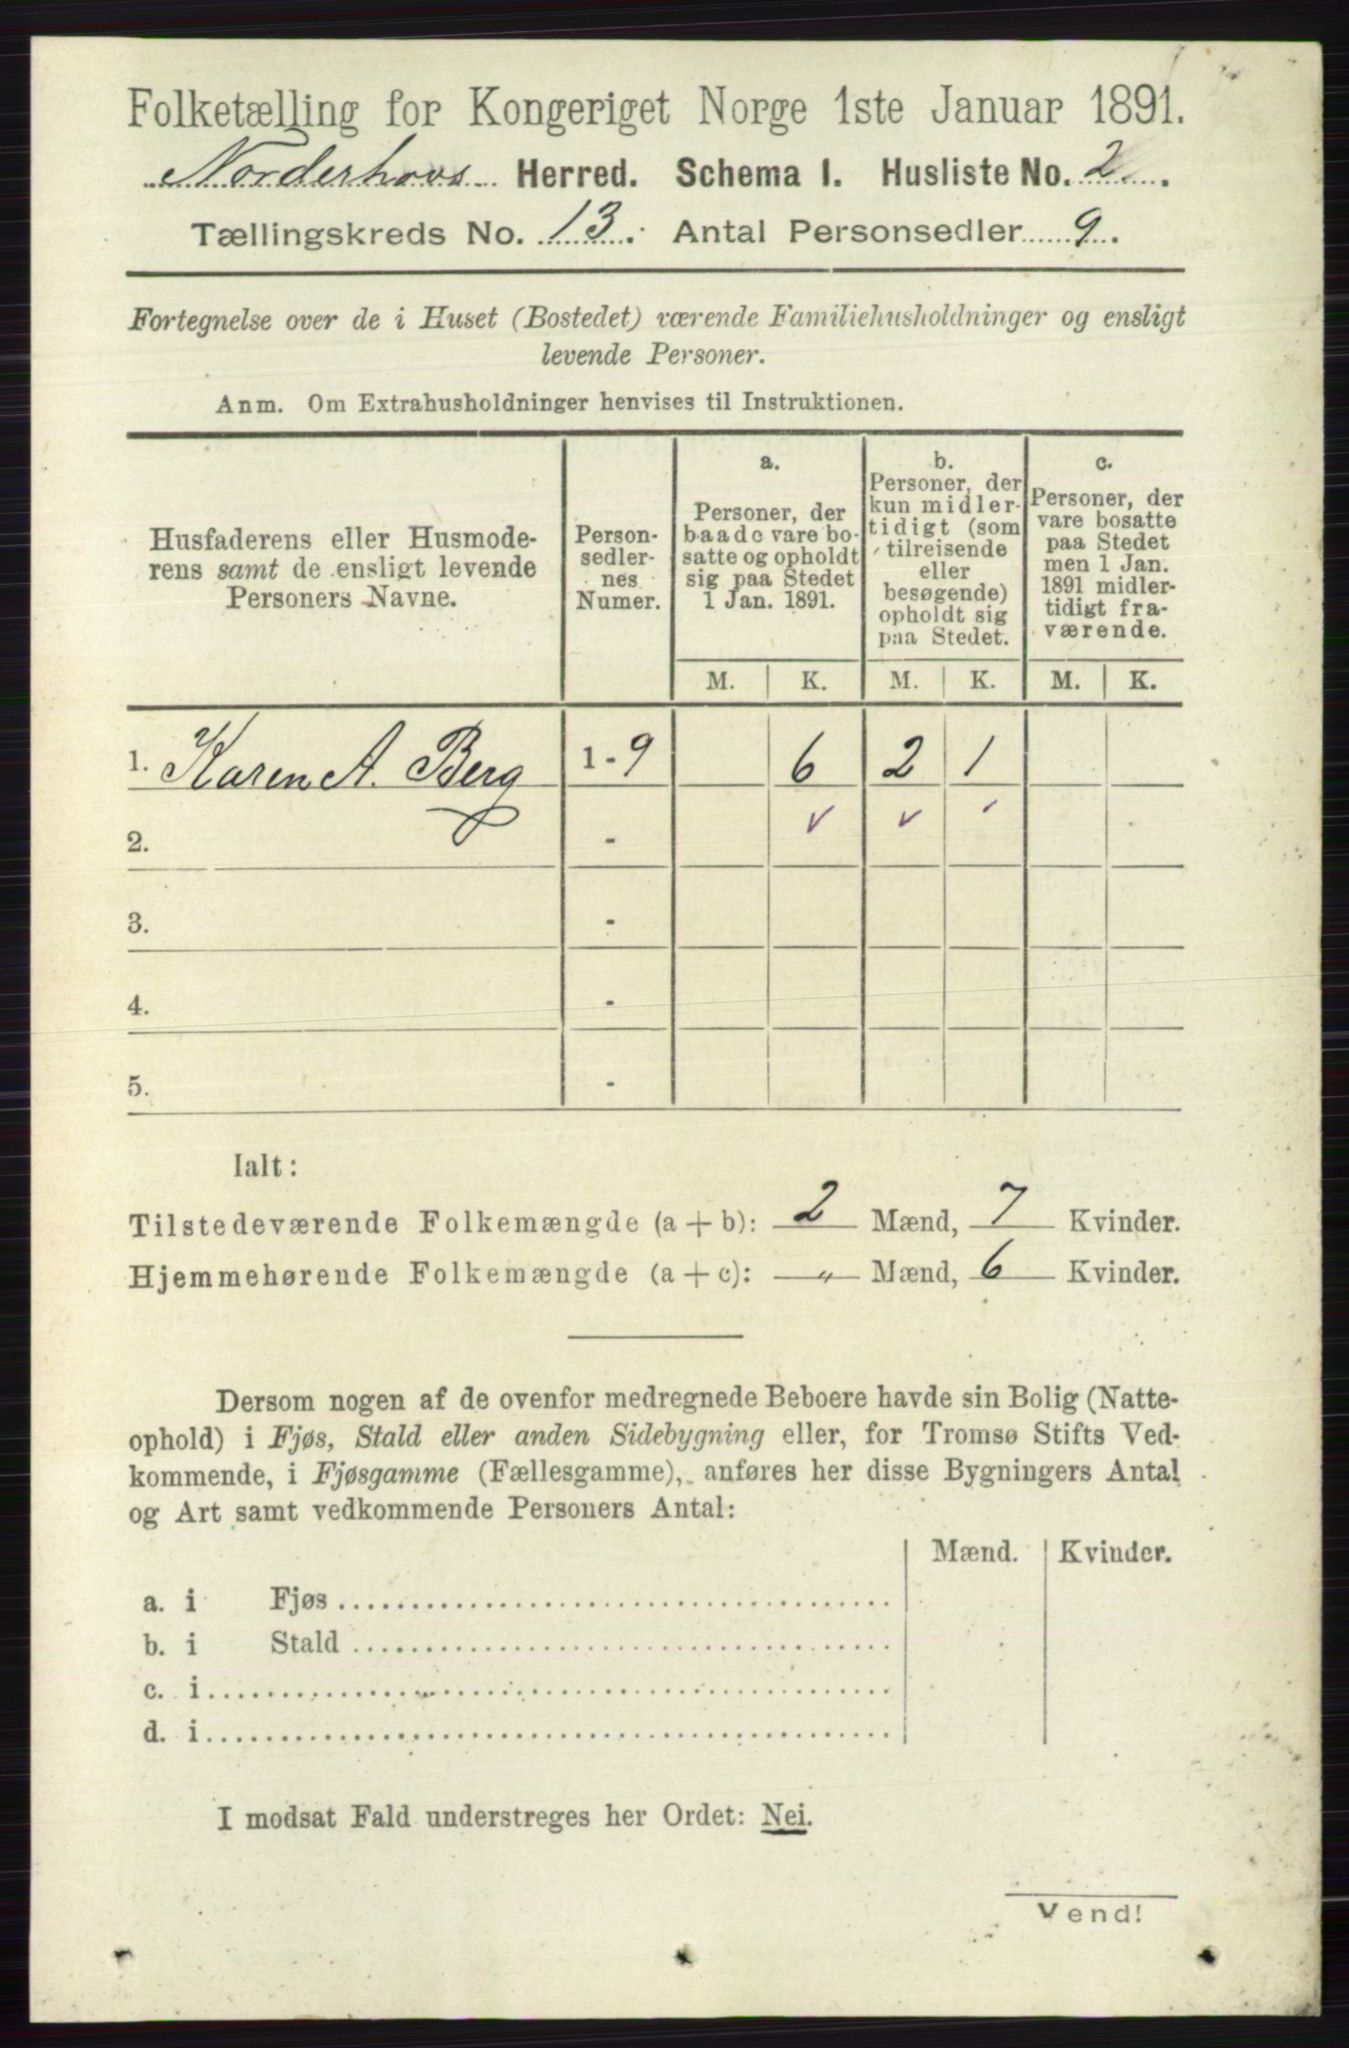 Folketælling for Kongeriget Norge 1ste Januar 1891.
Norderhovs Herred. Schema I. Husliste No. 2.
Tællingskreds No. 13. Antal Personsedler 9.
Fortegnelse over de i Huset (Bostedet) værende Familiehusholdninger og ensligt
levende Personer.
Anm. Om Extrahusholdninger henvises til Instruktionen.
Husfaderens eller Husmode-
rens samt de ensligt levende
Personers Navne.
Person-
sedler-
nes
Numer.
a.
Personer, der
baade vare bo-
satte og opholdt
sig paa Stedet
1 Jan. 1891.
b.
Personer, der
kun midler-
tidigt (som
tilreisende
eller
besøgende)
opholdt sig
paa Stedet.
c.
Personer, der
vare bosatte
paa Stedet
men 1 Jan.
1891 midler-
tidigt fra-
værende.
M. K. M. K. M. K.
1. Karen A. Berg 1-9 6 2 1
2. -
3. -
4. -
5. -
Ialt:
Tilstedeværende Folkemængde (a + b): 2 Mænd, 7 Kvinder.
Hjemmehørende Folkemængde (a + c): — „ — Mænd, 6 Kvinder.
Dersom nogen af de ovenfor medregnede Beboere havde sin Bolig (Natte-
ophold) i Fjøs, Stald eller anden Sidebygning eller, for Tromsø Stifts Ved-
kommende, i Fjøsgamme (Fællesgamme), anføres her disse Bygningers Antal
og Art samt vedkommende Personers Antal:
Mænd. Kvinder.
a. i Fjøs
b. i Stald
c. i
d. i
I modsat Fald understreges her Ordet: Nei.
Vend!